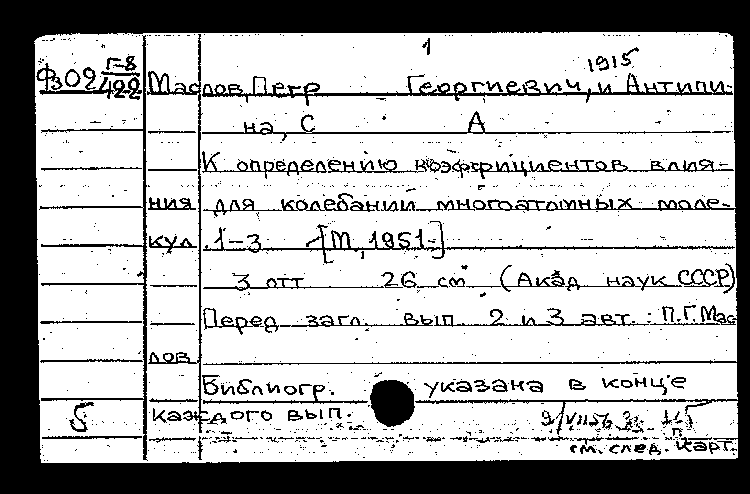 1
Г-8
Ф302/422 Маслов, Петр Георгиевич, 1915 и Антипи-
на, С А
К определению коэффициентов влия-
ния для колебаний многоатомных моле-
кул. 1-3 -[М, 1951-]
3 отт 26 см (Акад наук СССР)
Перед загл. вып. 2 и 3 авт.: П.Г. Мас-
лов
Библиогр. указана в конце
5 каждого вып.
см. след. карт.